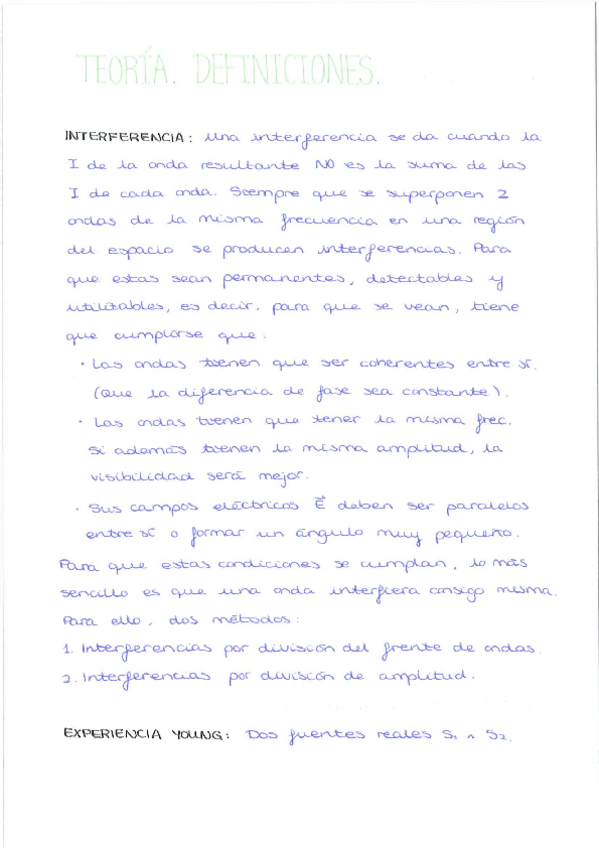 TEORÍA. DEFINICIONES.
INTERFERENCIA: Una interferencia se da cuando la
I de la onda resultante NO es la suma de las
I de cada onda. Siempre que se superponen 2
ondas de la misma frecuencia en una región
del espacio se producen interferencias. Para
que estas sean permanentes, detectables y
utilizables, es decir, para que se vean, tiene
que cumplirse que:
· Las ondas tienen que ser coherentes entre sí.
(Que la diferencia de fase sea constante).
· Las ondas tienen que tener la misma frec.
Si además tienen la misma amplitud, la
visibilidad será mejor.
· Sus campos eléctricos E⃗ deben ser paralelos
entre sí o formar un ángulo muy pequeño.
Para que estas condiciones se cumplan, lo más
sencillo es que una onda interfiera consigo misma.
Para ello, dos métodos:
1. Interferencias por división del frente de ondas.
2. Interferencias por división de amplitud.
EXPERIENCIA YOUNG: Dos fuentes reales S₁ ∧ S₂.